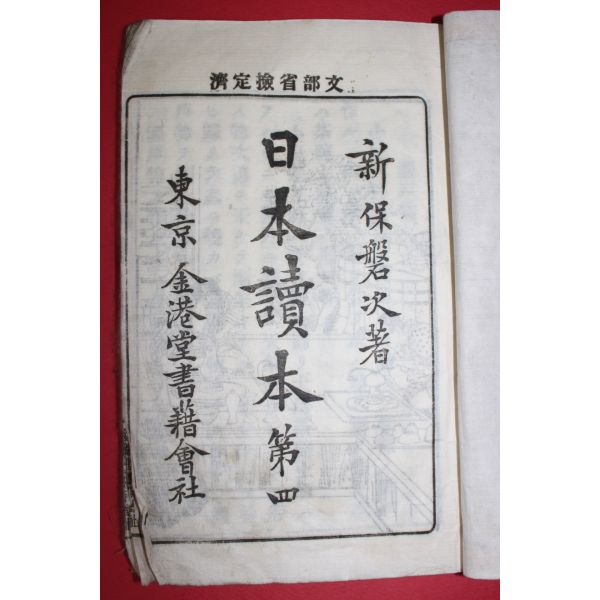 文部省檢定濟
新保磐次著
日本讀本第四
東京 金港堂書籍會社